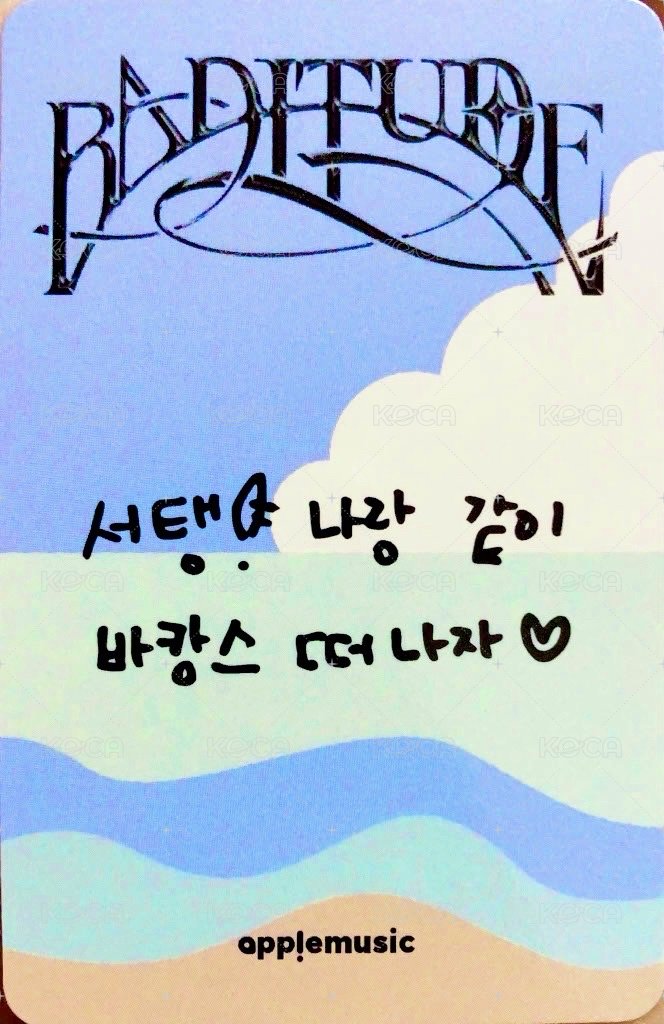 BADITUDE
서탱 나랑 같이
바캉스 떠나자♡
applemusic
KOCA